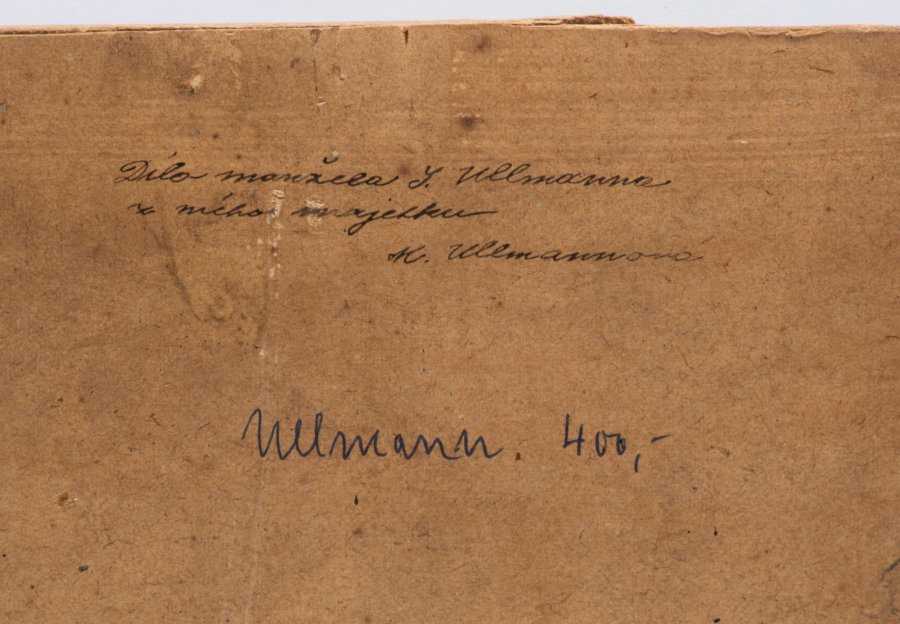 Dílo manžela J. Ullmanna
z mého majetku
M. Ullmannová
Ullmann. 400,-